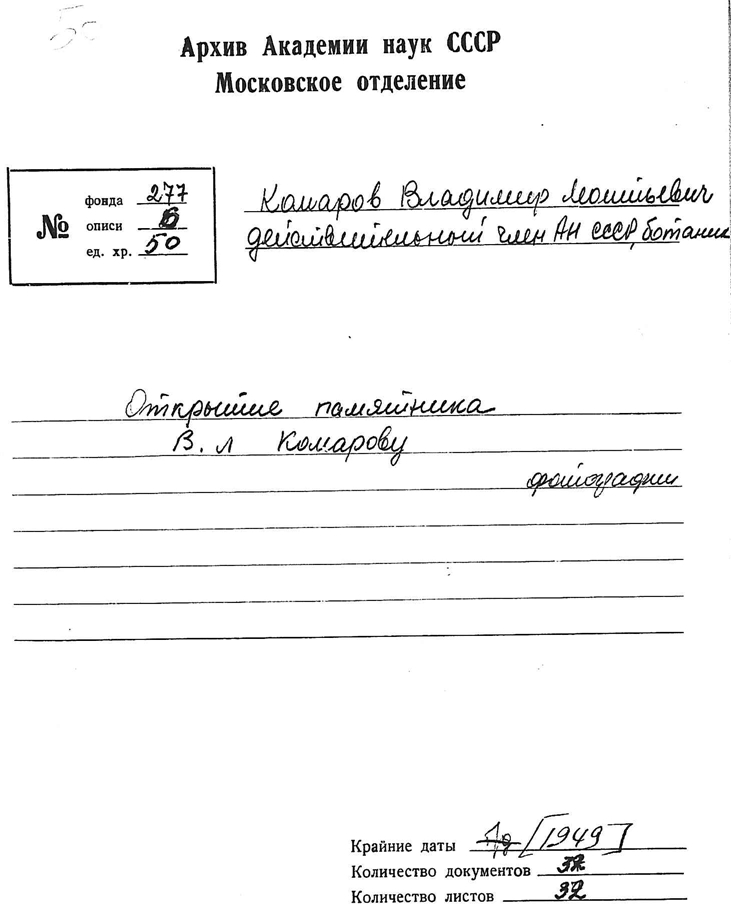 50
Архив Академии наук СССР
Московское отделение
№
фонда 277
описи 6
ед. хр. 50
Комаров Владимир Леонтьевич
действительный член АН СССР, ботаник
Открытие памятника
В. Л Комарову
фотографии
Крайние даты [1949]
Количество документов 32
Количество листов 32